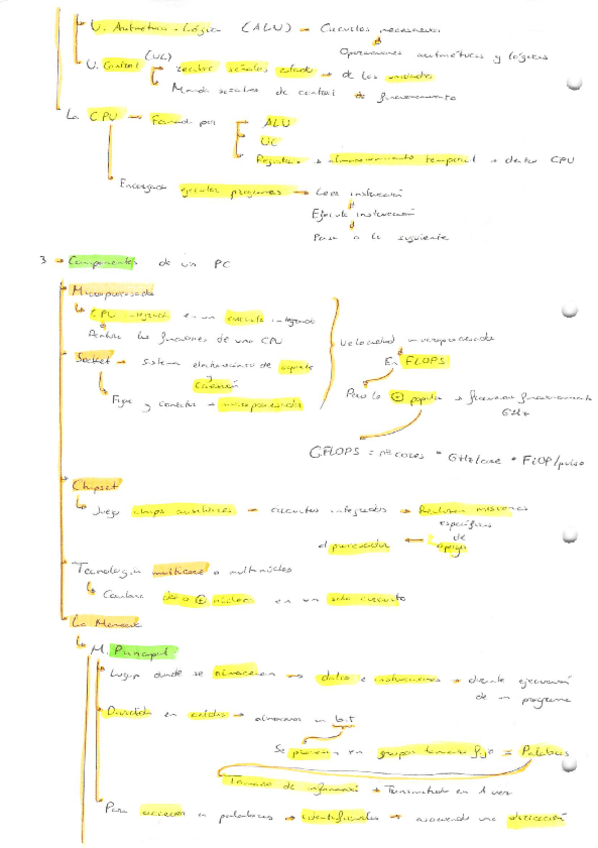 U. Aritmetico-Lógica (ALU) → Circuitos necesarios
Operaciones aritméticas y lógicas
U. Control (UC) recibe señales estado → de las unidades
Manda señales de control → funcionamiento
La CPU → Formada por → ALU
UC
Registros → almacenamiento temporal → dentro CPU
Encargada ejecutar programas → Leer instrucción
Ejecuta instrucción
Pasa a la siguiente
3 → Componentes de un PC
Microprocesador
CPU integrada en un circuito integrado
las funciones de una CPU
Velocidad microprocesador
En FLOPS
Socket → sistema electromecánico de soporte
y conexión
Fijar y conectar → microprocesador
Pero lo ⊕ popular → frecuencia funcionamiento
GHz
GFLOPS = nº cores * GHz/core * FLOP/pulso
Chipset
Juego chips auxiliares → circuitos integrados → Realizan misiones
específicas
de
apoyo
el procesador
Tecnología multicore o multinúcleo
Combina dos o ⊕ núcleos en un solo circuito
La Memoria
M. Principal
Lugar donde se almacenan → datos e instrucciones → durante ejecución
de un programa
Dividida en celdas → almacenan un bit
Se en grupos tamaño fijo = Palabras
Tamaño de información → Transmitida en 1 vez
Para acceder a palabras → identificadas → una dirección